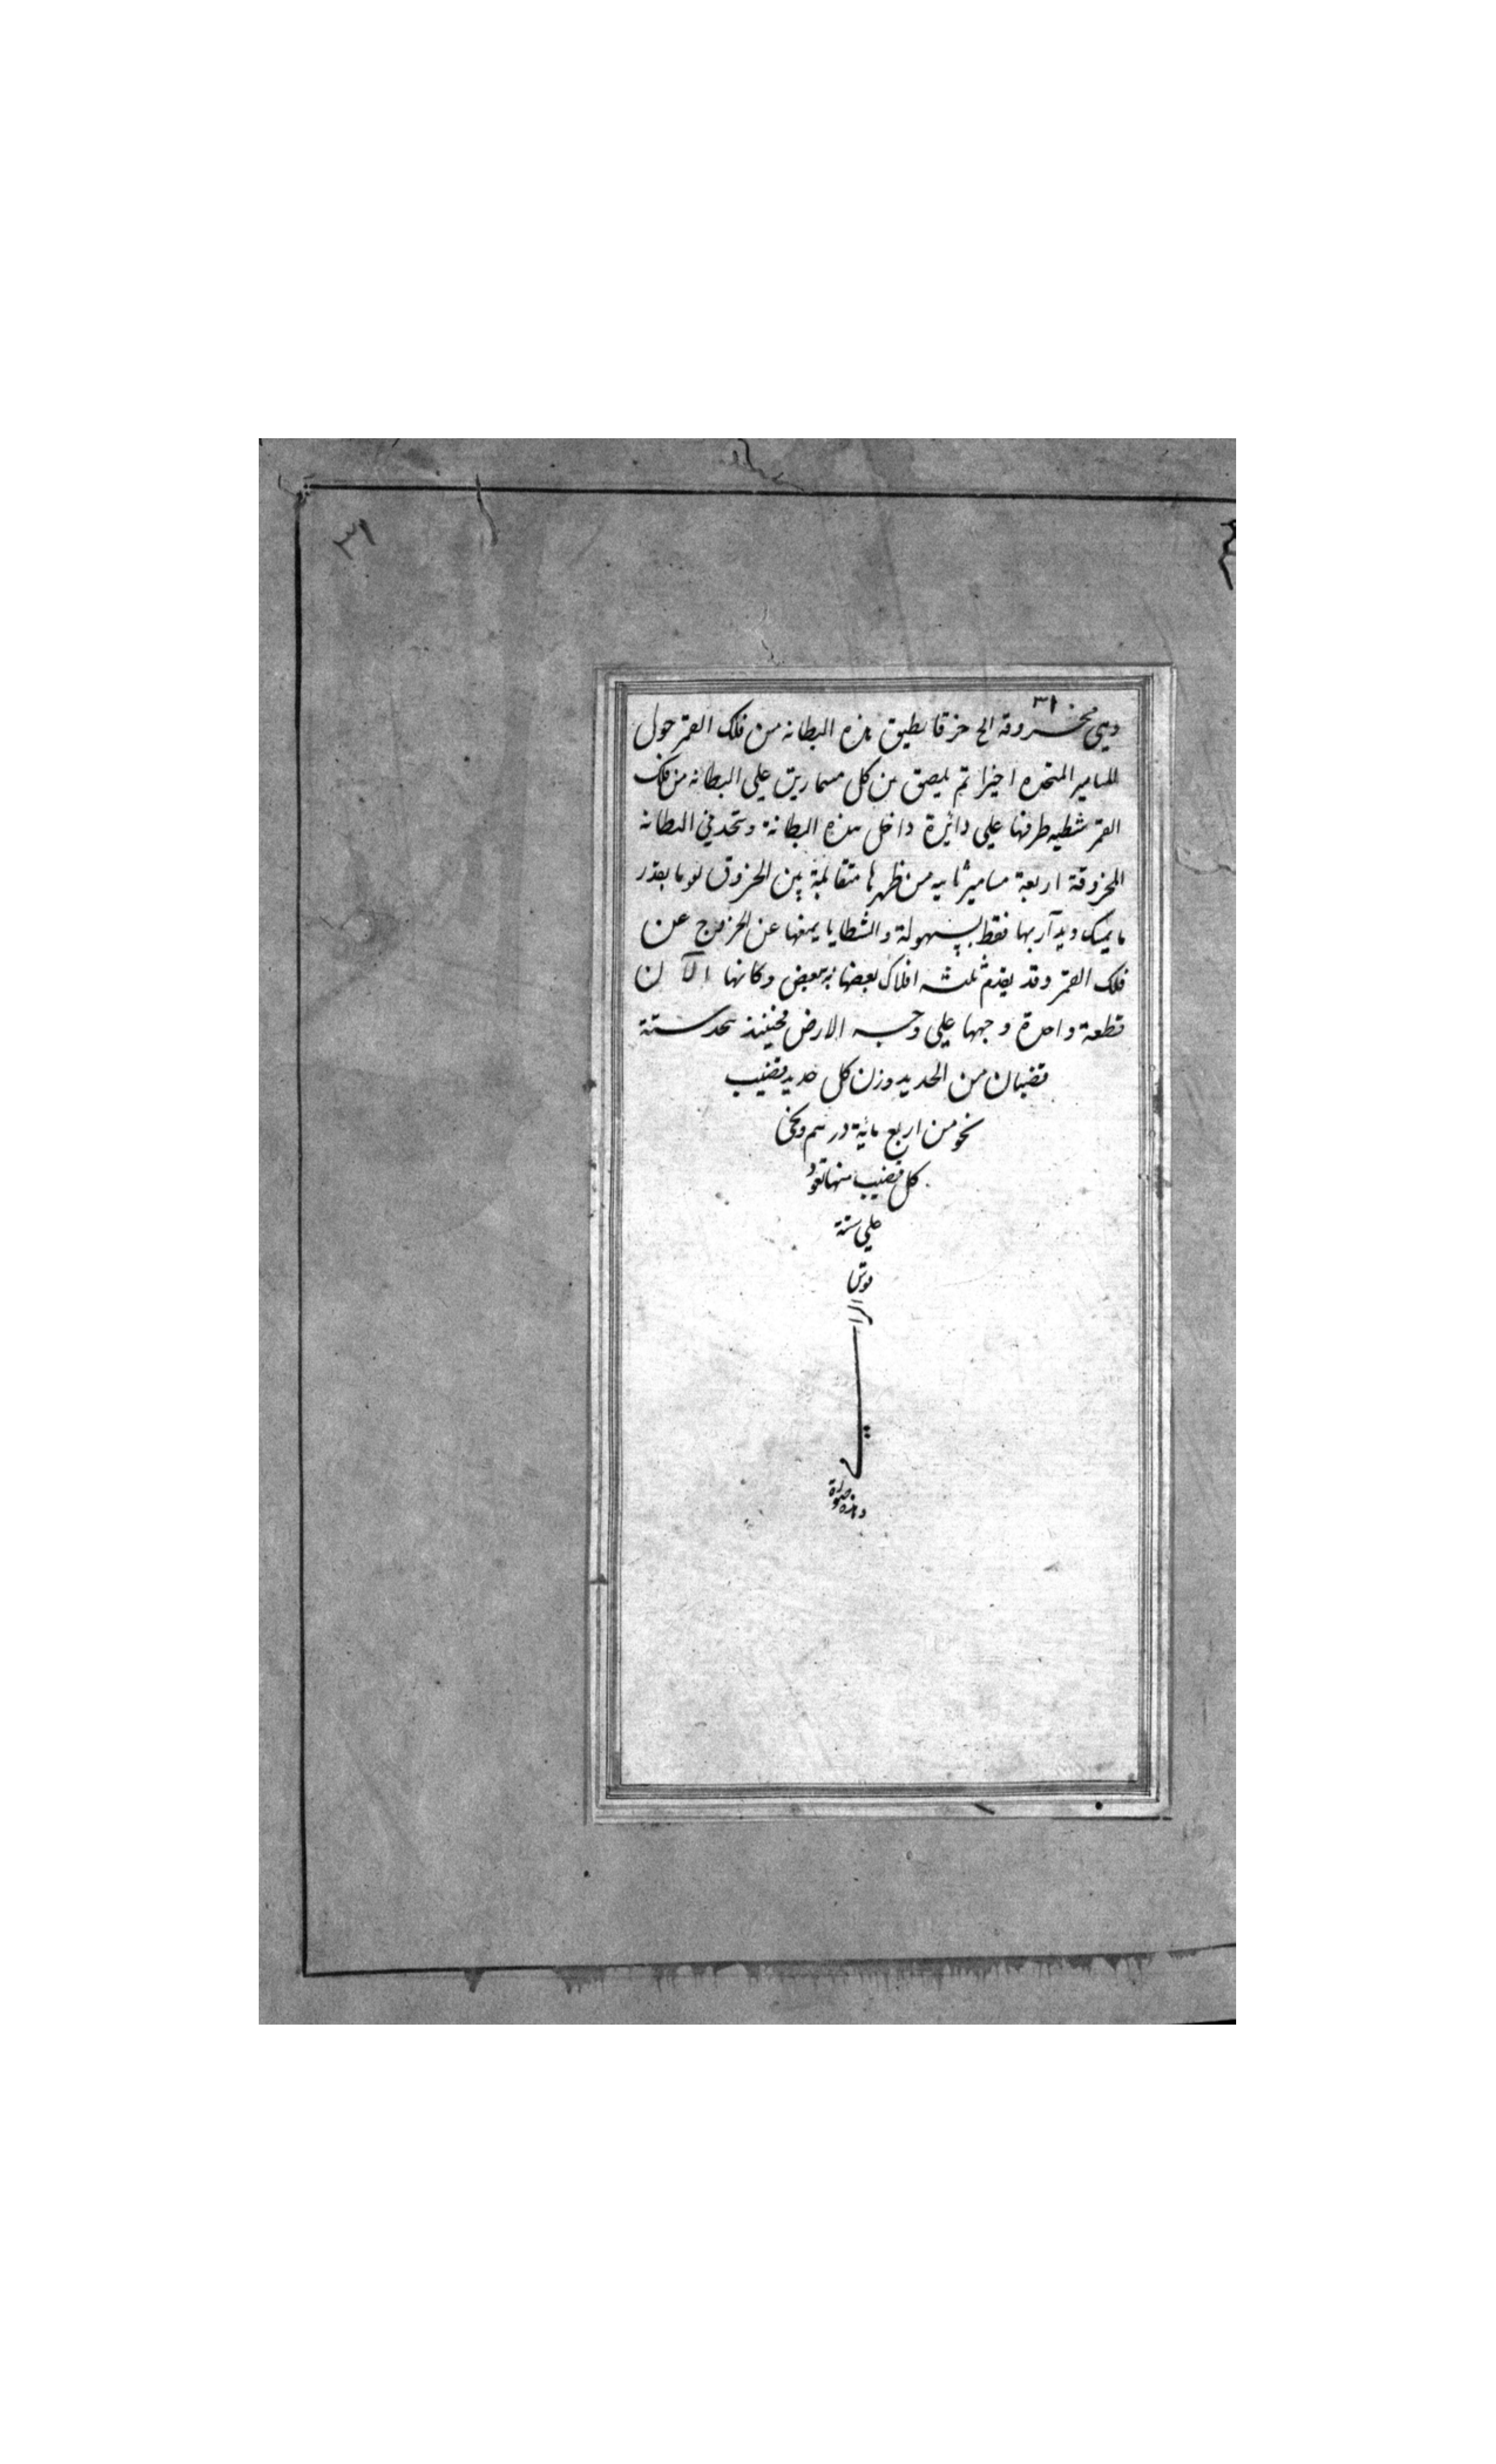 ٣١
٣١
وهي مخروقة الح خرقا يطيق هذه البطانه من فلك القمر حول
المسامير المتخذه اخيرا ثم يلصق من كل مسمارين على البطانه من فلك
القمر شظيه طرفها على دائرة داخل هذه البطانة وتتخذ في البطانه
المخروقة اربعة مسامير ثابته من ظهرها متقابلة بين الخروق بقدر
ما يمسك ويدار بها فقط بسهولة والشظايا يمنعها عن الخروج عن
فلك القمر وقد يقدم ثلثه افلاك بعضها ببعض وكانها الآن
قطعة واحدة وجهها على وجه الارض فحينئذ يتخذ ستة
قضبان من الحديد وزن كل حديد قضيب
نحو من اربع مائة درهم ويحنى
كل قضيب منها تقوه
على ستة
قوس
الراى
وهذه صورة